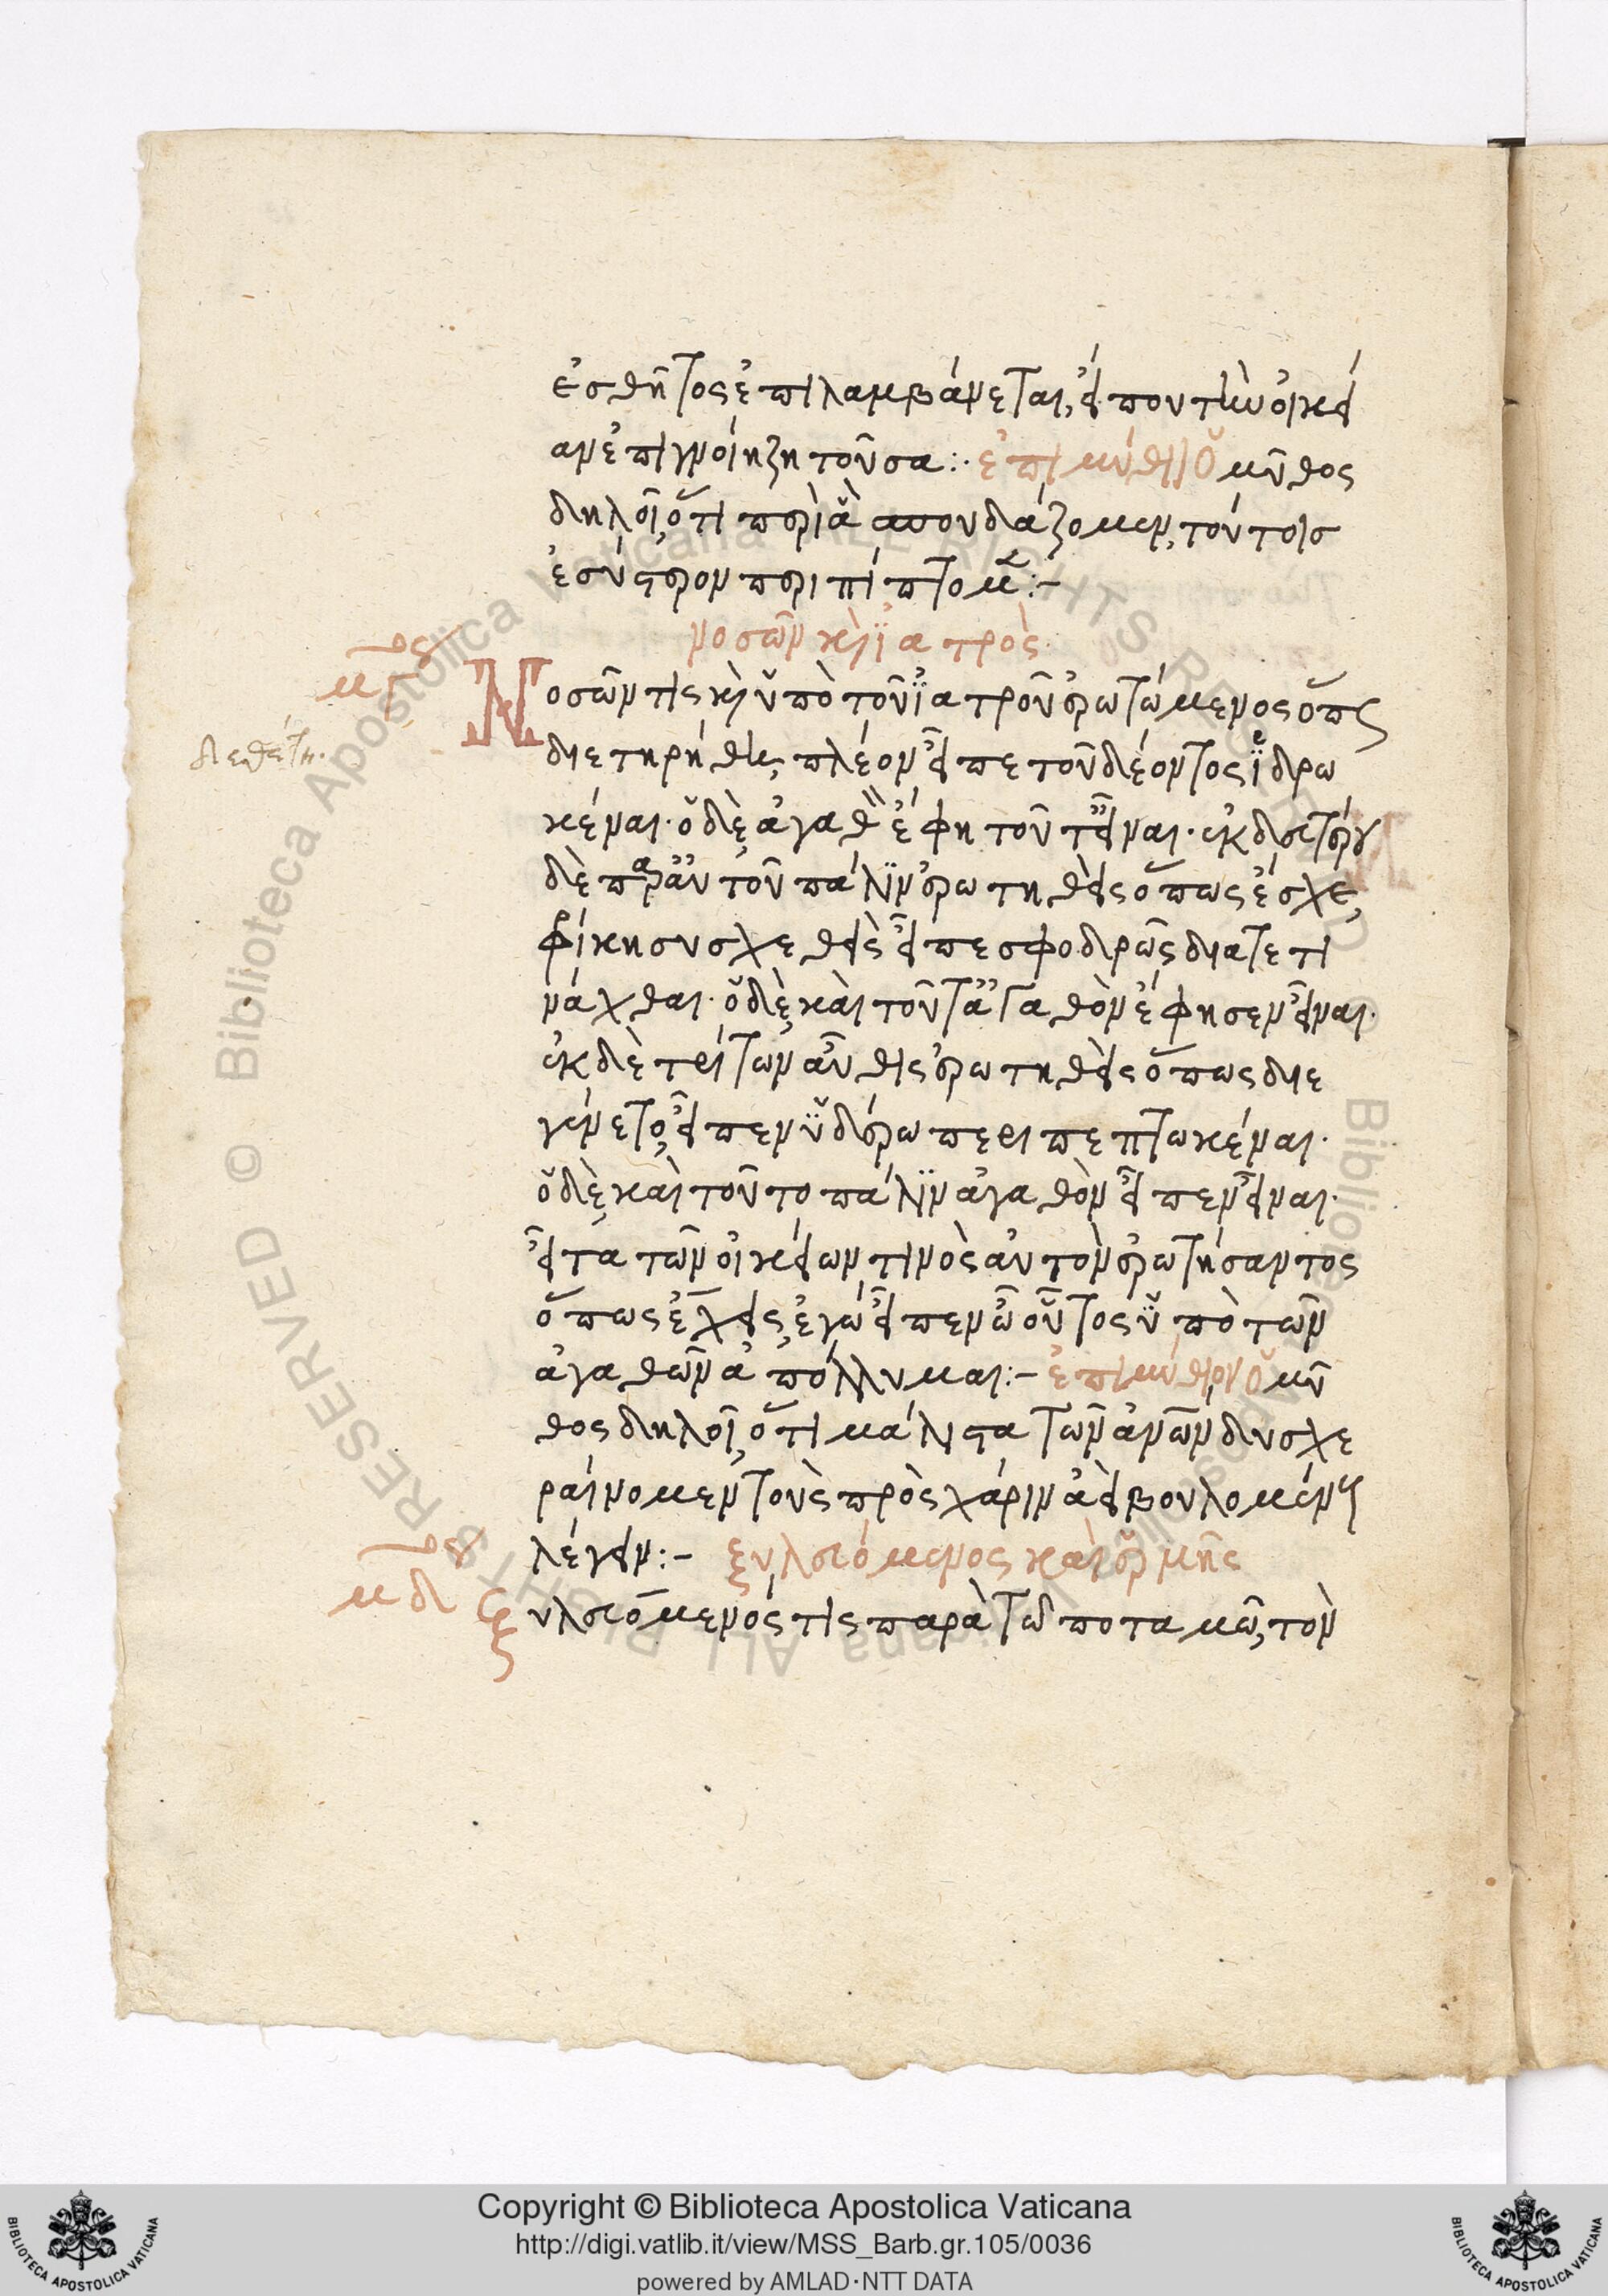 ἐσθῆτος ἐπιλαμβάνεται, εἴ που τὴν οἰκεί
αν ἐπιγνοίη ζητοῦσα:· ἐπιμύθιον Ὁ μῦθος
δηλοῖ, ὅτι περὶ ἃ σπουδάζομεν, τούτοις
ἐσύστερον περιπίπτομεν:–
νοσῶν κὶ ἰατρὸς·
μγος
Νοσῶν τις κὶ ὑπὸ τοῦ ἰατροῦ ἐρωτώμενος ὅπως
διετηρήθη, πλέον εἶπε τοῦ δέοντος ἱδρω
κέναι· ὁ δὲ, ἀγαθὸν ἔφη τοῦτ' εἶναι· ἐκ δευτέρου
δὲ παρ' αὐτοῦ πάλιν ἐρωτηθεὶς ὅπως ἔσχε,
φρίκη συσχεθεὶς εἶπε σφοδρῶς διατετι
νάχθαι· ὁ δὲ, καὶ τοῦτ' ἀγαθὸν ἔφησεν εἶναι·
ἐκ δὲ τρίτων αὖθις ἐρωτηθεὶς ὅπως διε
γένετο, εἶπεν ὑδέρω περιπεπτωκέναι·
ὁ δὲ, καὶ τοῦτο πάλιν ἀγαθὸν εἶπεν εἶναι·
εἶτα τῶν οἰκείων τινὸς αὐτὸν ἐρωτήσαντος
ὅπως ἔχεις, ἐγώ εἶπεν ὦ οὗτος ὑπὸ τῶν
ἀγαθῶν ἀπόλλυμαι:– ἐπιμύθιον Ὁ μῦ
θος δηλοῖ, ὅτι μάλιστα τῶν ἀνῶν δυσχε
ραίνομεν, τοὺς πρὸς χάριν ἀεὶ βουλομένους
λέγειν:– ξυλευόμενος καὶ ἑρμῆς
μδος
ξυλευόμενός τις παρὰ τῶ ποταμῶ, τὸν
Copyright © Biblioteca Apostolica Vaticana
http://digi.vatlib.it/view/MSS_Barb.gr.105/0036
powered by AMLAD·NTT DATA